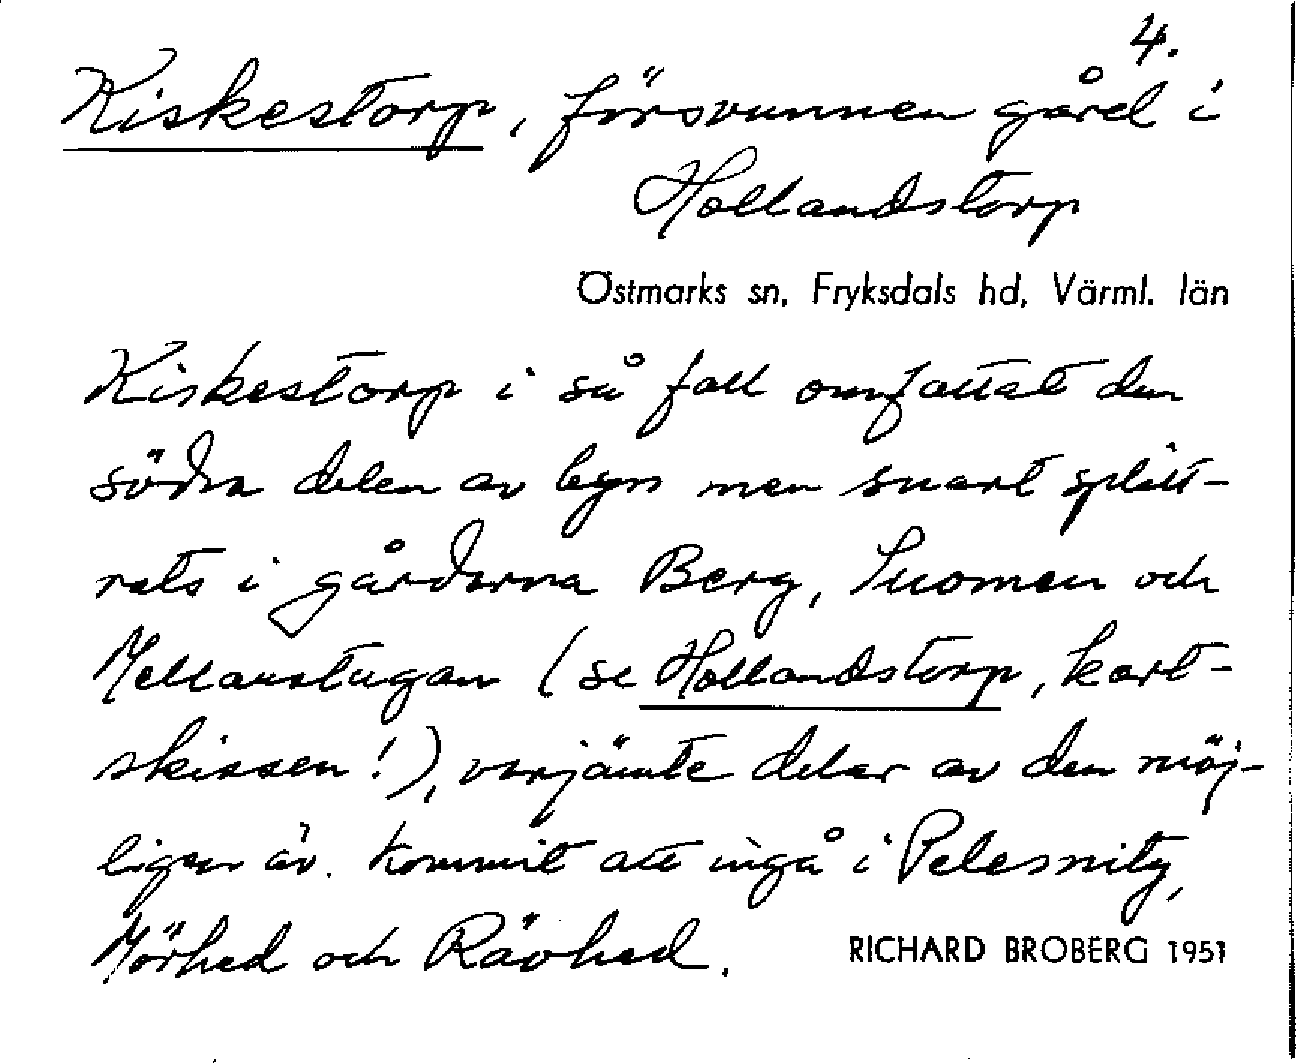 4.
Kiskestorp, försvunnen gård i
Hollandstorp
Östmarks sn, Fryksdals hd, Värml. län
Kiskestorp i så fall omfattat den
södra delen av byn men snart splitt-
rats i gårdarna Berg, Suomen och
Mellanstugan (se Hollandstorp, kart-
skissen!), varjämte delar av den möj-
ligen äv. kommit att ingå i Pelesnity,
Mörhed och Rävhed.
RICHARD BROBERG 1951